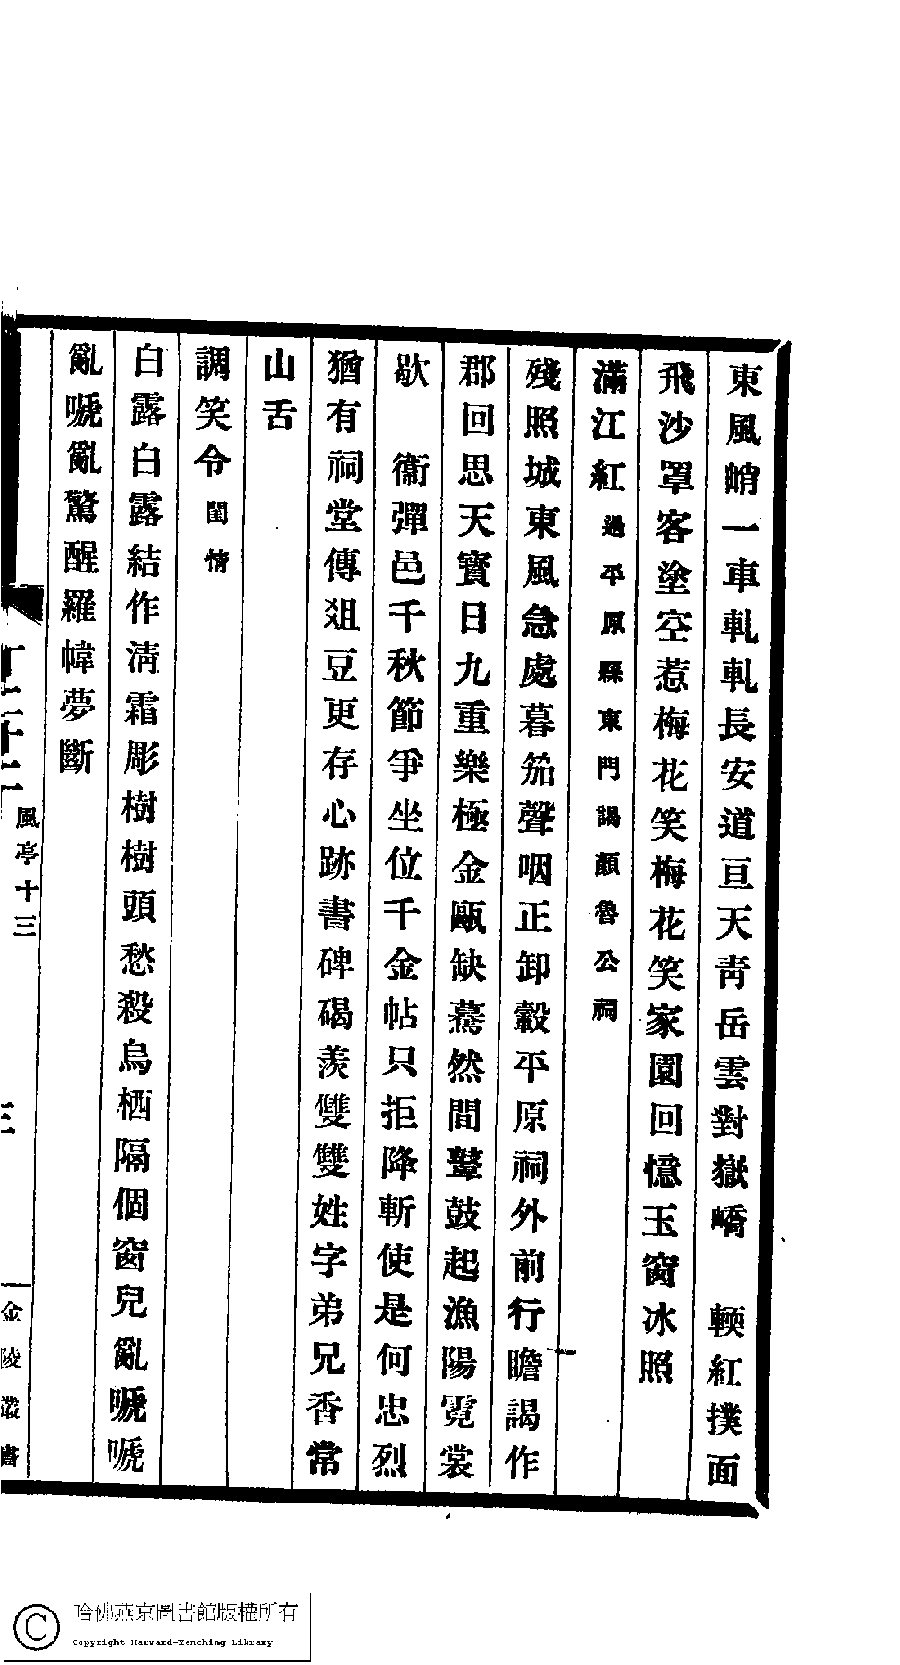 東風峭一車軋軋長安道亘天靑岳雲對嶽嶠　輭紅撲面
飛沙罩客塗空惹梅花笑梅花笑家園回憶玉窗冰照
滿江紅 過平原縣東門謁顏魯公祠
殘照城東風急處暮笳聲咽正卸轂平原祠外前行瞻謁作
郡回思天寶日九重樂極金甌缺驀然間鼙鼓起漁陽霓裳
歇　衞彈邑千秋節爭坐位千金帖只拒降斬使是何忠烈
猶有祠堂傳俎豆更存心跡書碑碣羨雙雙姓字弟兄香常
山舌
調笑令 閨情
白露白露結作淸霜彫樹樹頭愁殺烏栖隔個窗兒亂嗁嗁
亂嗁亂驚醒羅幃夢斷
風亭十三
三
金陵叢書
哈佛燕京圖書館版權所有
Copyright Harvard-Yenching Library